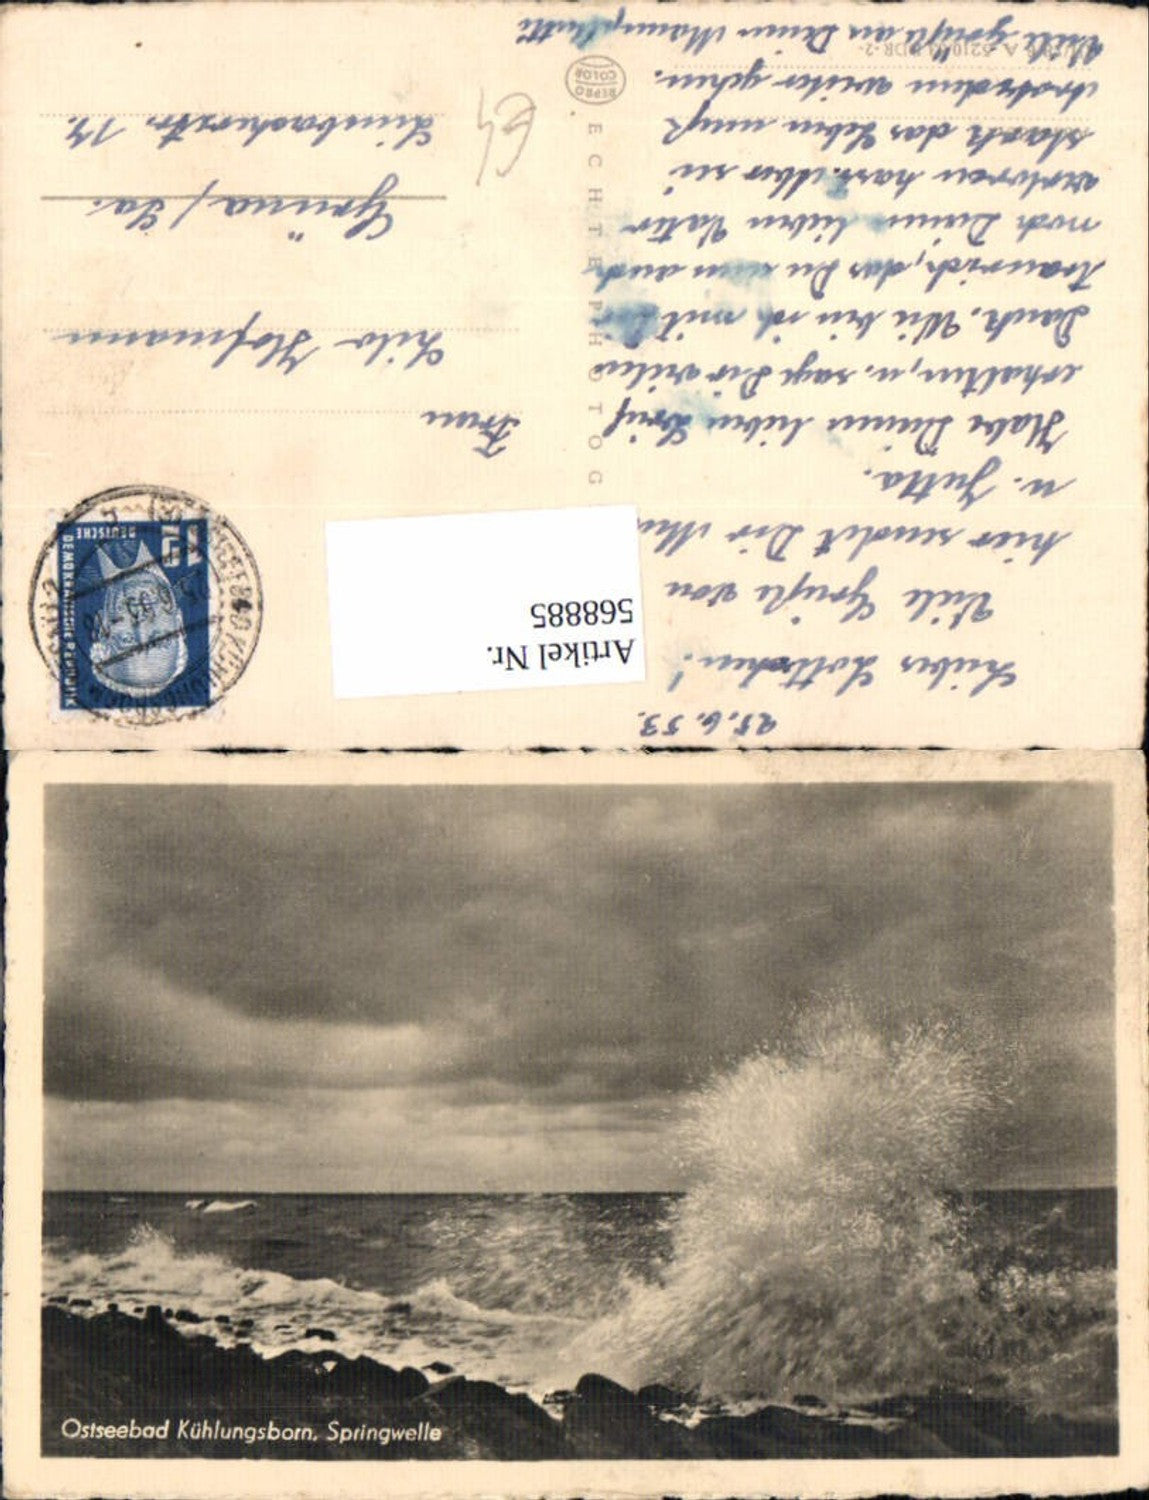 25.6.53.
Liebes Lottchen!
Viele Grüße von
hier sendet Dir
u. Jutta.
Habe Deinen lieben Brief
erhalten, u. sage Dir vielen
Dank. Wie bin ich mit Dir
traurich, das Du nun auch
noch Deinen lieben Vater
verloren hast. Aber sei
stark das Leben muß
trotzdem weiter gehen.
Viele Grüße an Deine
ECHTE PHOTOG
REPRO
COLOR
Artikel Nr.
568885
Frau
Hofmann
Grüna / Sa.
Limbacherstr. 14.
DEUTSCHE
DEMOKRATISCHE REPUBLIK
12
Ostseebad Kühlungsborn. Springwelle